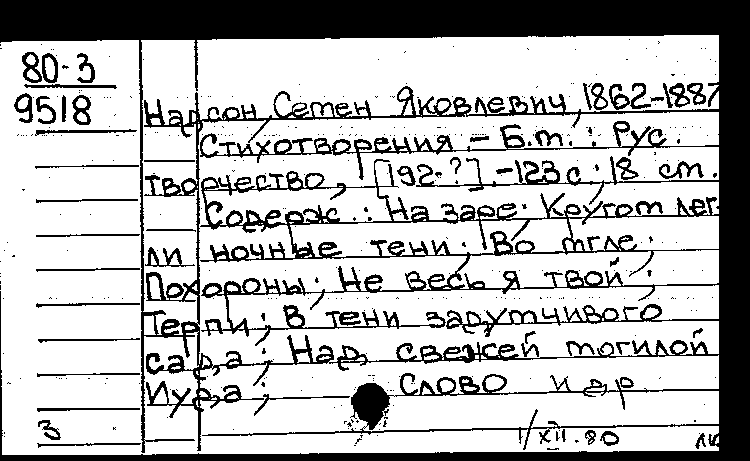 80-3
9518
Надсон, Семен Яковлевич, 1862-1887
Стихотворения. - Б.м.: Рус.
творчество, [192-?]. -123 с.; 18 см.
Содерж.: На заре; Кругом лег-
ли ночные тени; Во мгле;
Похороны; Не весь я твой;
Терпи; В тени задумчивого
сада; Над свежей могилой
Иуда; Слово и др.
3
1/XII.80
лк